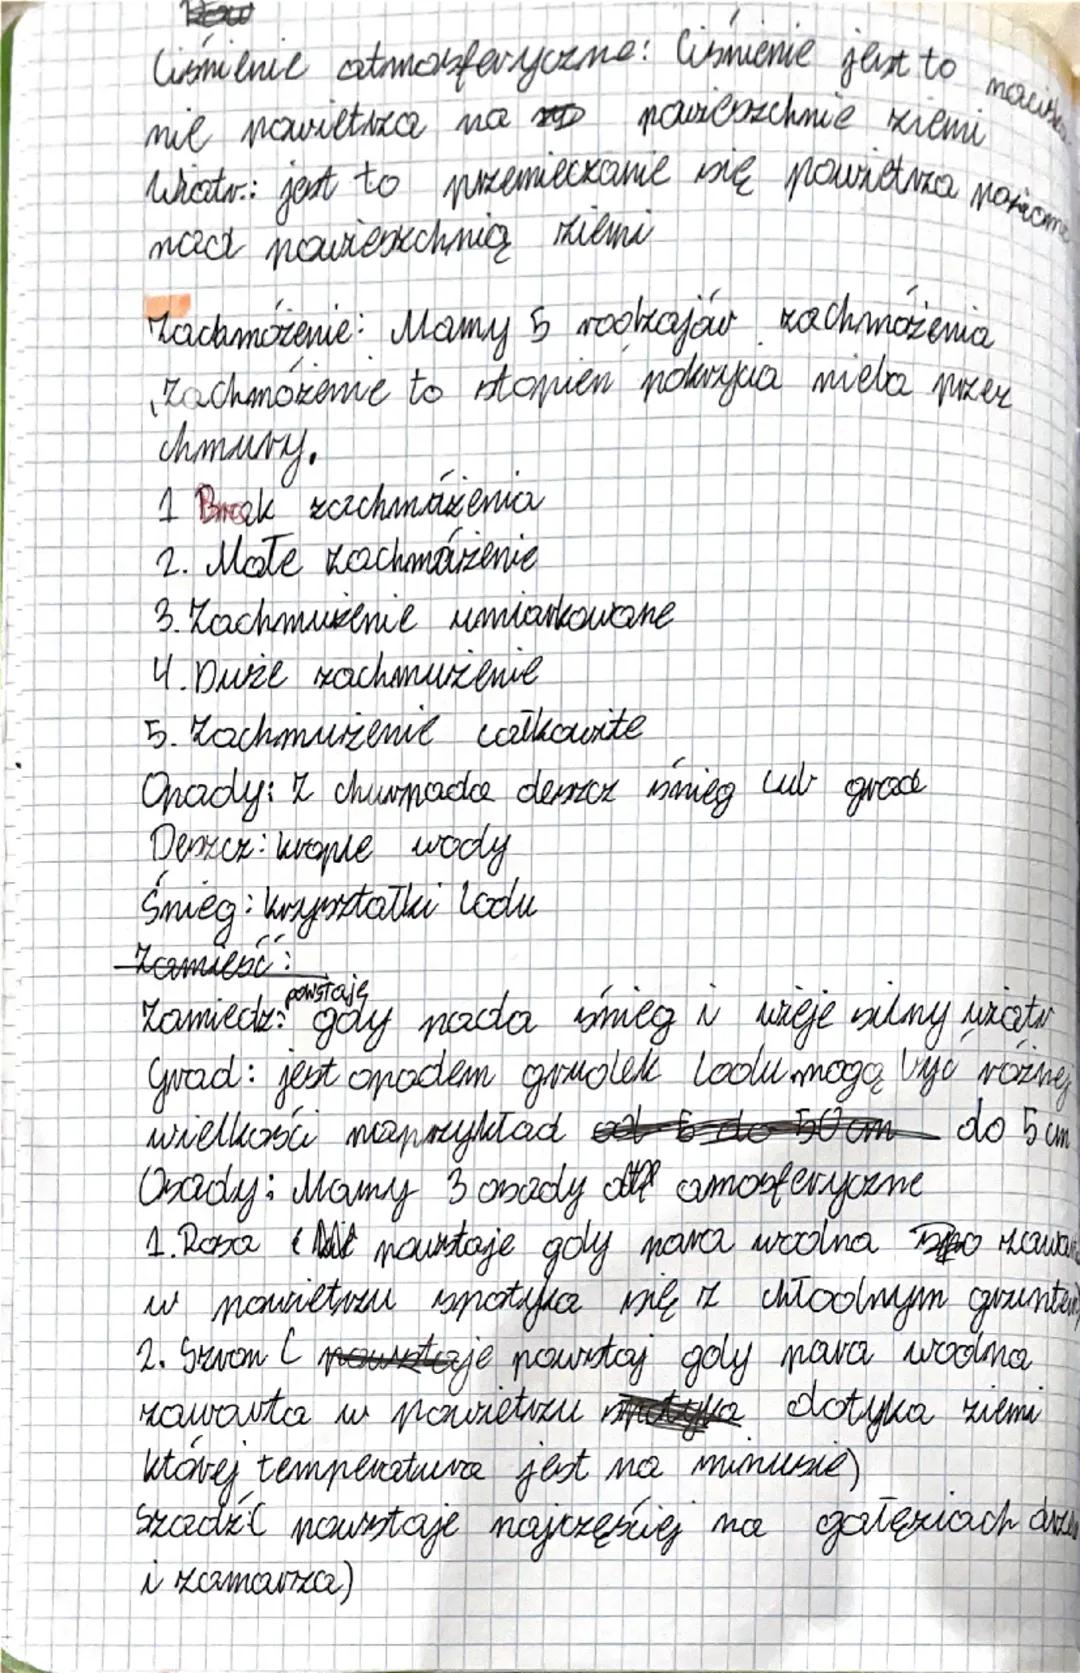 Ciśnienie atmosferyczne: Ciśnienie jest to naciska
nie powietrza na powierzchnie ziemi
Wiatr: jest to przemieczanie się powietrza poziome
nad powierzchnią ziemi
Zachmóżenie: Mamy 5 rodzajów zachmóżenia
Zachmóżenie to stopień pokrycia nieba przez
chmury.
1 Brak zachmóżenia
2. Małe zachmóżenie
3. Zachmużenie umiarkowane
4. Duże zachmużenie
5. Zachmużenie całkowite
Opady: Z chmur pada deszcz śnieg lub grad
Deszcz: krople wody
Śnieg: kryształki lodu
Zamieść:
powstaję
Zamiedź: gdy pada śnieg i wieje silny wiatr
Grad: jest opadem grudek lodu mogą być różnej
wielkości naprzykład od 5 do 50 cm do 5 cm
Osady: Mamy 3 osady amosferyczne
1. Rosa ( powstaje gdy para wodna zawar
w powietrzu spotyka się z chłodnym gruntem)
2. Szron ( powstaje powstaj gdy para wodna
zawarta w powietrzu spotyka dotyka ziemi
której temperatura jest na minusie)
Szadź( powstaje najczęściej na gałęziach drzew
i zamarza)